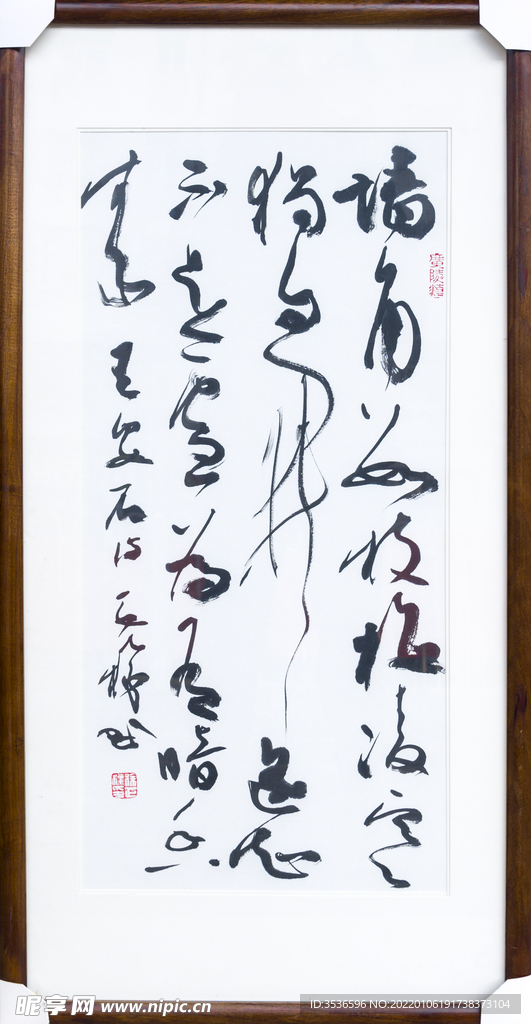 墙角数枝梅凌寒
独自开遥知
不是雪为有暗香
来 王安石诗
昵享网 www.nipic.cn
ID:3536596 NO:20220106191738373104